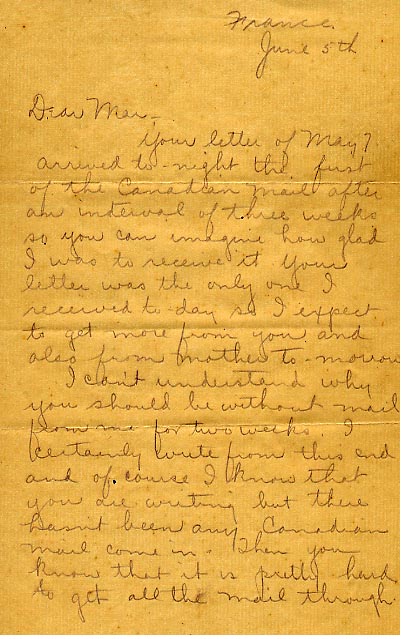 France.
June 5th
Dear Mae:-
Your letter of May 7
arrived to-night the first
of the Canadian mail after
an interval of three weeks
so you can imagine how glad
I was to receive it Your
letter was the only one I
received to-day so I expect
to get more from you and
also from mother to-morrow
I can't understand why
you should be without mail
from me for two weeks. I
certainly write from this end
and of course I know that
you are writing but there
hasn't been any Canadian
mail come in. Then you
know that it is pretty hard
to get all the mail through.